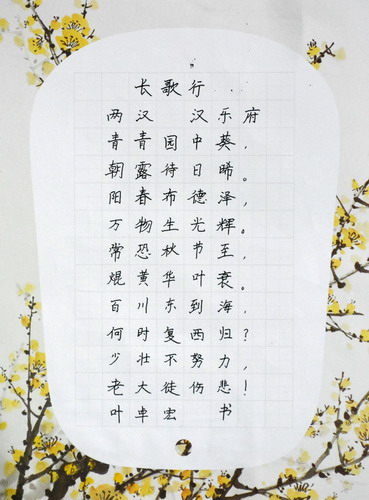 长歌行
两汉 汉乐府
青青园中葵，
朝露待日晞。
阳春布德泽，
万物生光辉。
常恐秋节至，
焜黄华叶衰。
百川东到海，
何时复西归？
少壮不努力，
老大徒伤悲！
叶卓宏 书